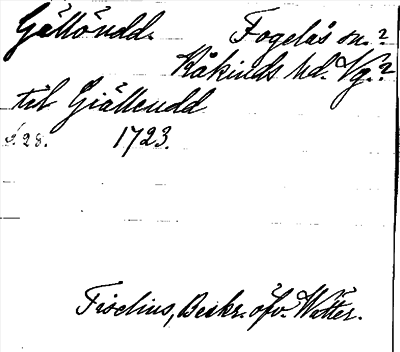 Gällöudd. Fogelås sn.?
Kåkinds hd. Vg.?
till Giälleudd
s. 28. 1723.
Fischius, Beskr. öfv. Wätter.